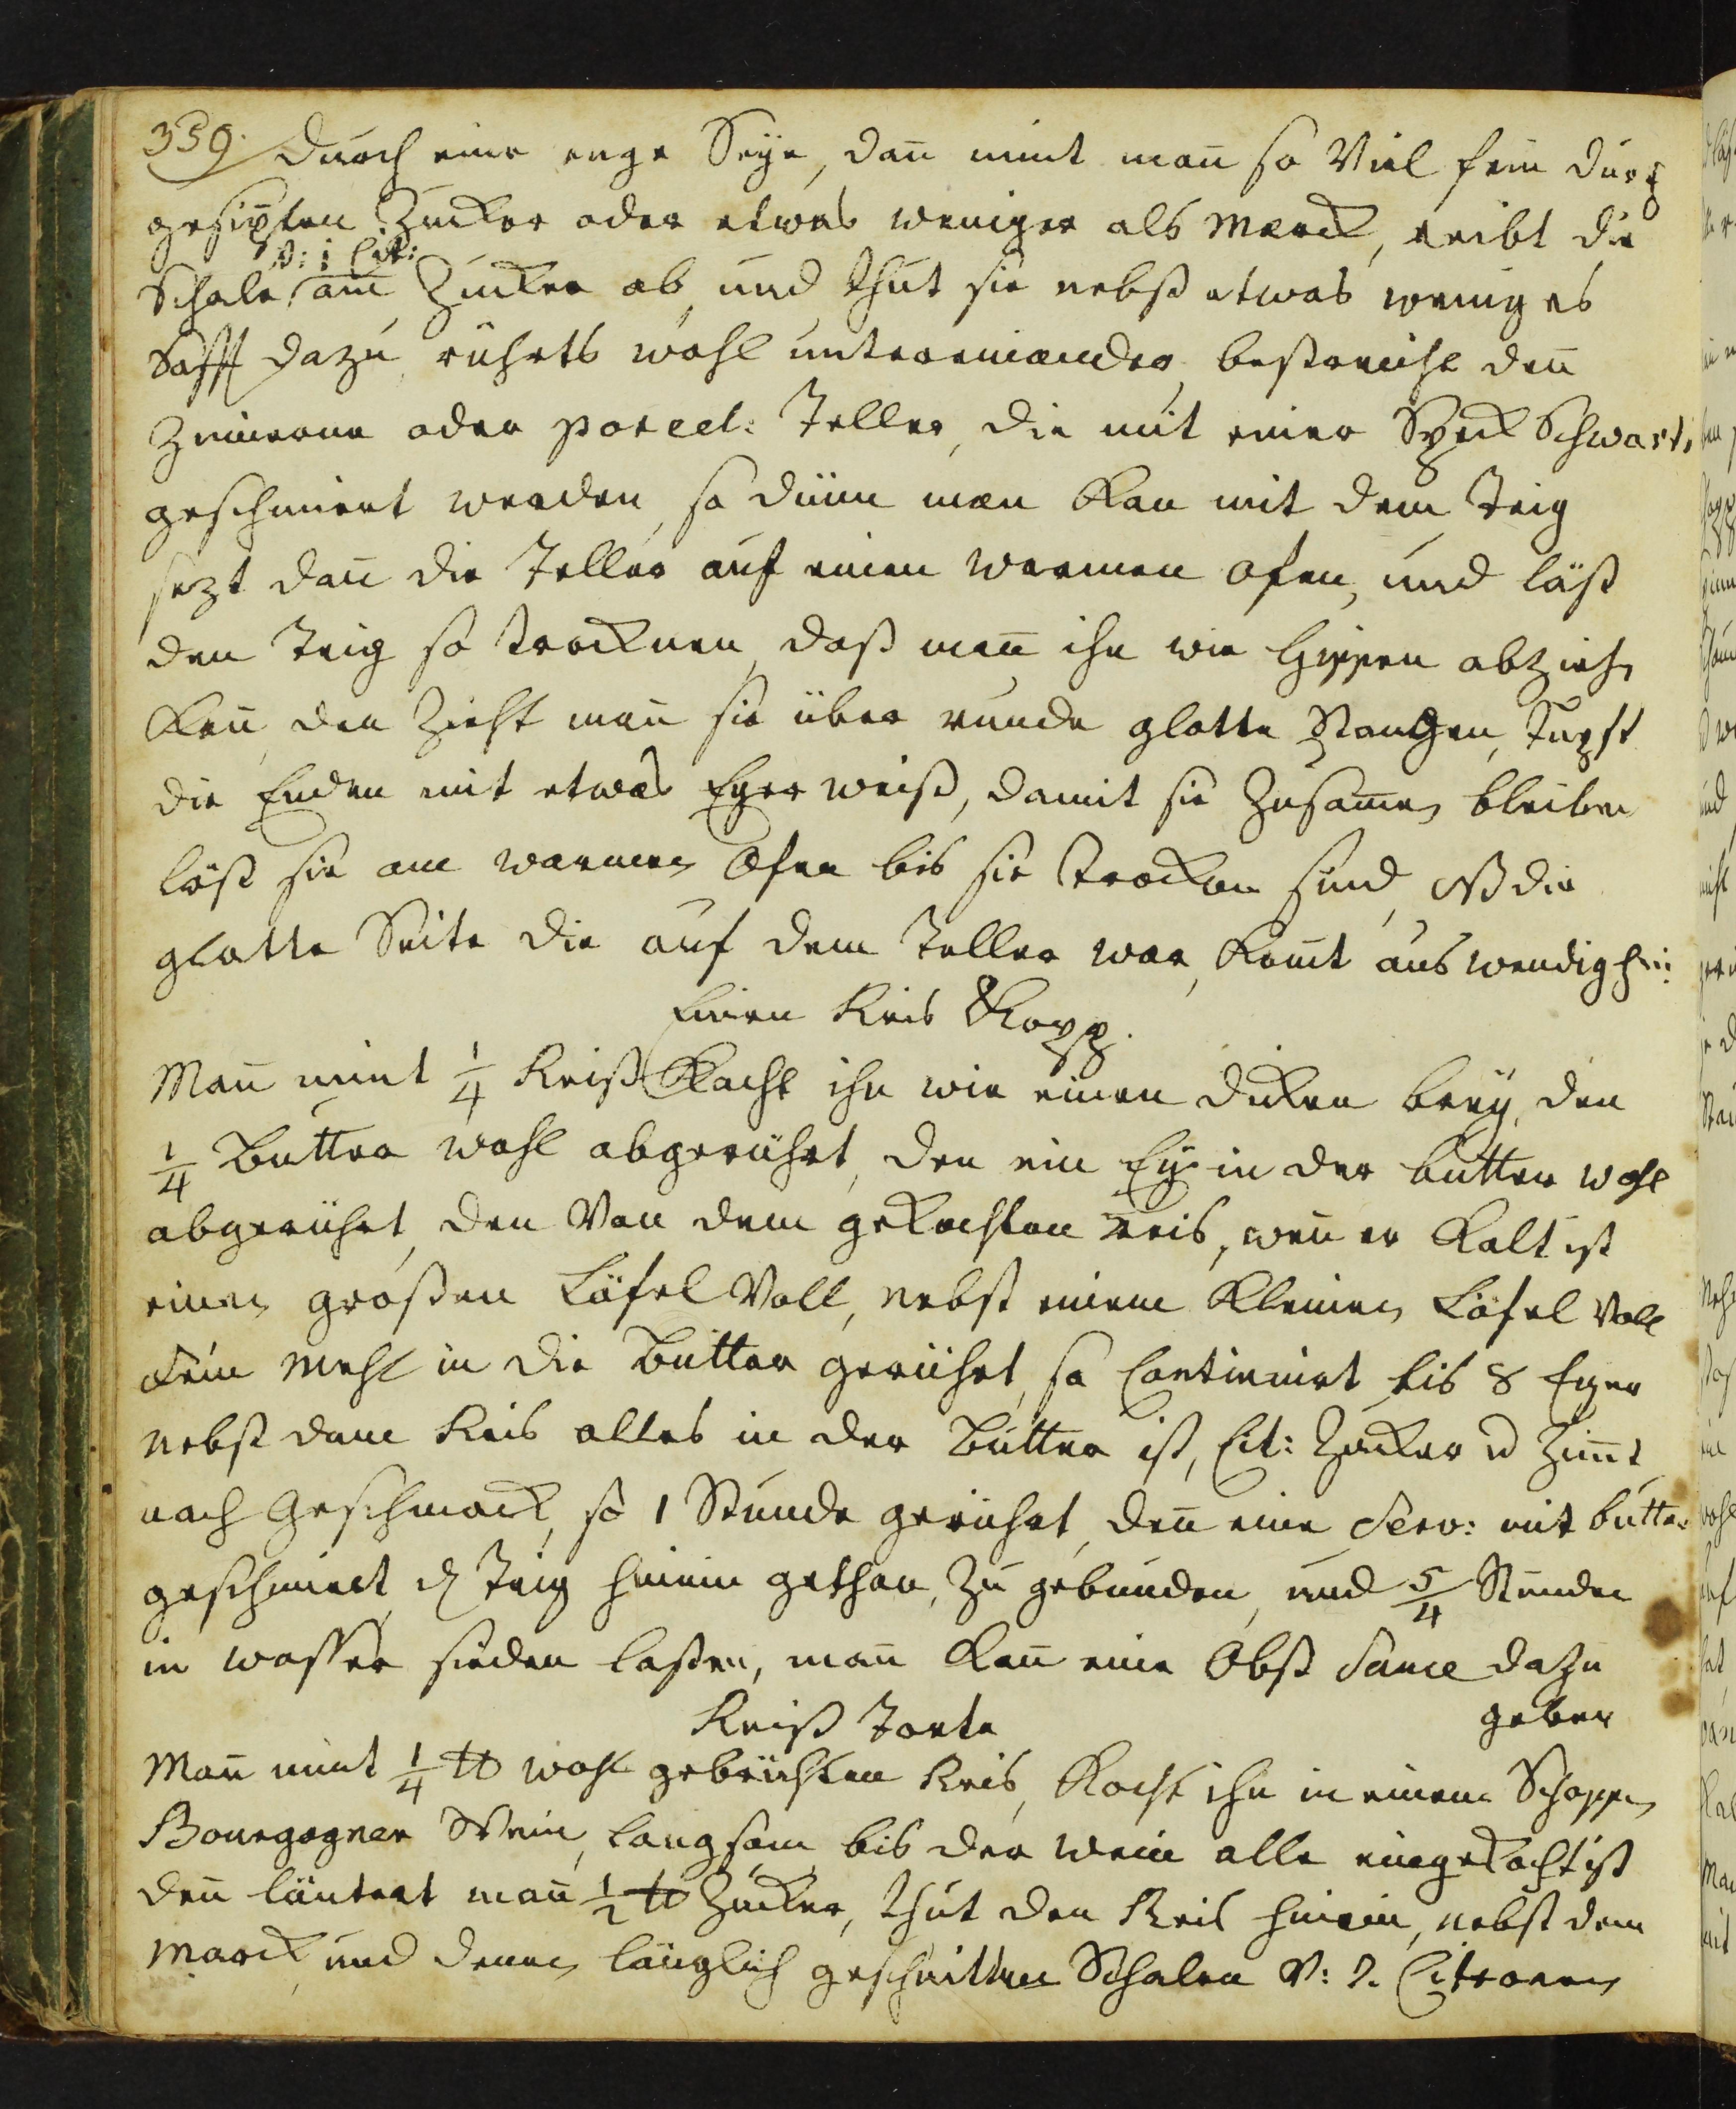 339. durch eine enge Seÿe, dañ nimt mañ so Viel fein durch
gesipten Zucker oder etwas weniger als Marck, reibt die
v: 1 Cit:
Schale am Zucker ab, und thut sie nebst etwas weniges
Safft dazu, rührts wohl untereinander, bestreicht deñ
Zinnerne oder porcel: Teller, die mit einer Speck Schwart,
geschmiert werden, so dünn man kan mit dem Teig
sezt dañ die Teller auf einen warmen ofen, und läst
den Teig so trocknen, daß mañ ihn wie Hippen abziehen
kañ, den zieht mañ sie über runde glatte Stangen, Tupft
die Enden mit etwas Eyer weiß, damit sie zusam̄en bleiben
läst sie am warmen Ofen bis sie trocken sind, NB die
glatte Seite die auf dem Teller war, kom̄t auswendig hin:
Einen Reis Kopf.
Mañ nimt 1/4 Reiß kocht ihn wie einen dicken breÿ, den
1/4 Butter wohl abgerührt, den ein Eÿ in der butter wohl
abgerührt, den Von dem gekochten Reis, weñ er kalt ist
einen großen Löfel Voll, nebst einem kleinen Löfel Voll
fein Mehl in die Butter gerührt, so Continuirt bis 8 Eyer
nebst dem Reis alles in der Butter ist, Cit: Zucker u Zim̄t
nach Geschmack, so 1 Stunde gerührt, deñ eine Serv: mit butter
geschmiert, d Teig hinein gethan, zu gebunden, und 5/4 Stunden
in wasser sieden laßen, mañ kañ eine Obst Sauce dazu
geben
Reiß Torte
Mañ nimt 1/4 ℔ wohl gebrühten Reis, kocht ihn in einem Schoppen
Bourgogner Wein, langsam bis der wein alle eingekocht ist
deñ läutert mañ 1/2 ℔ Zucker, thut den Reis hinein, nebst dem
Marck und denen länglich geschnittnen Schalen v: 2. Citronen